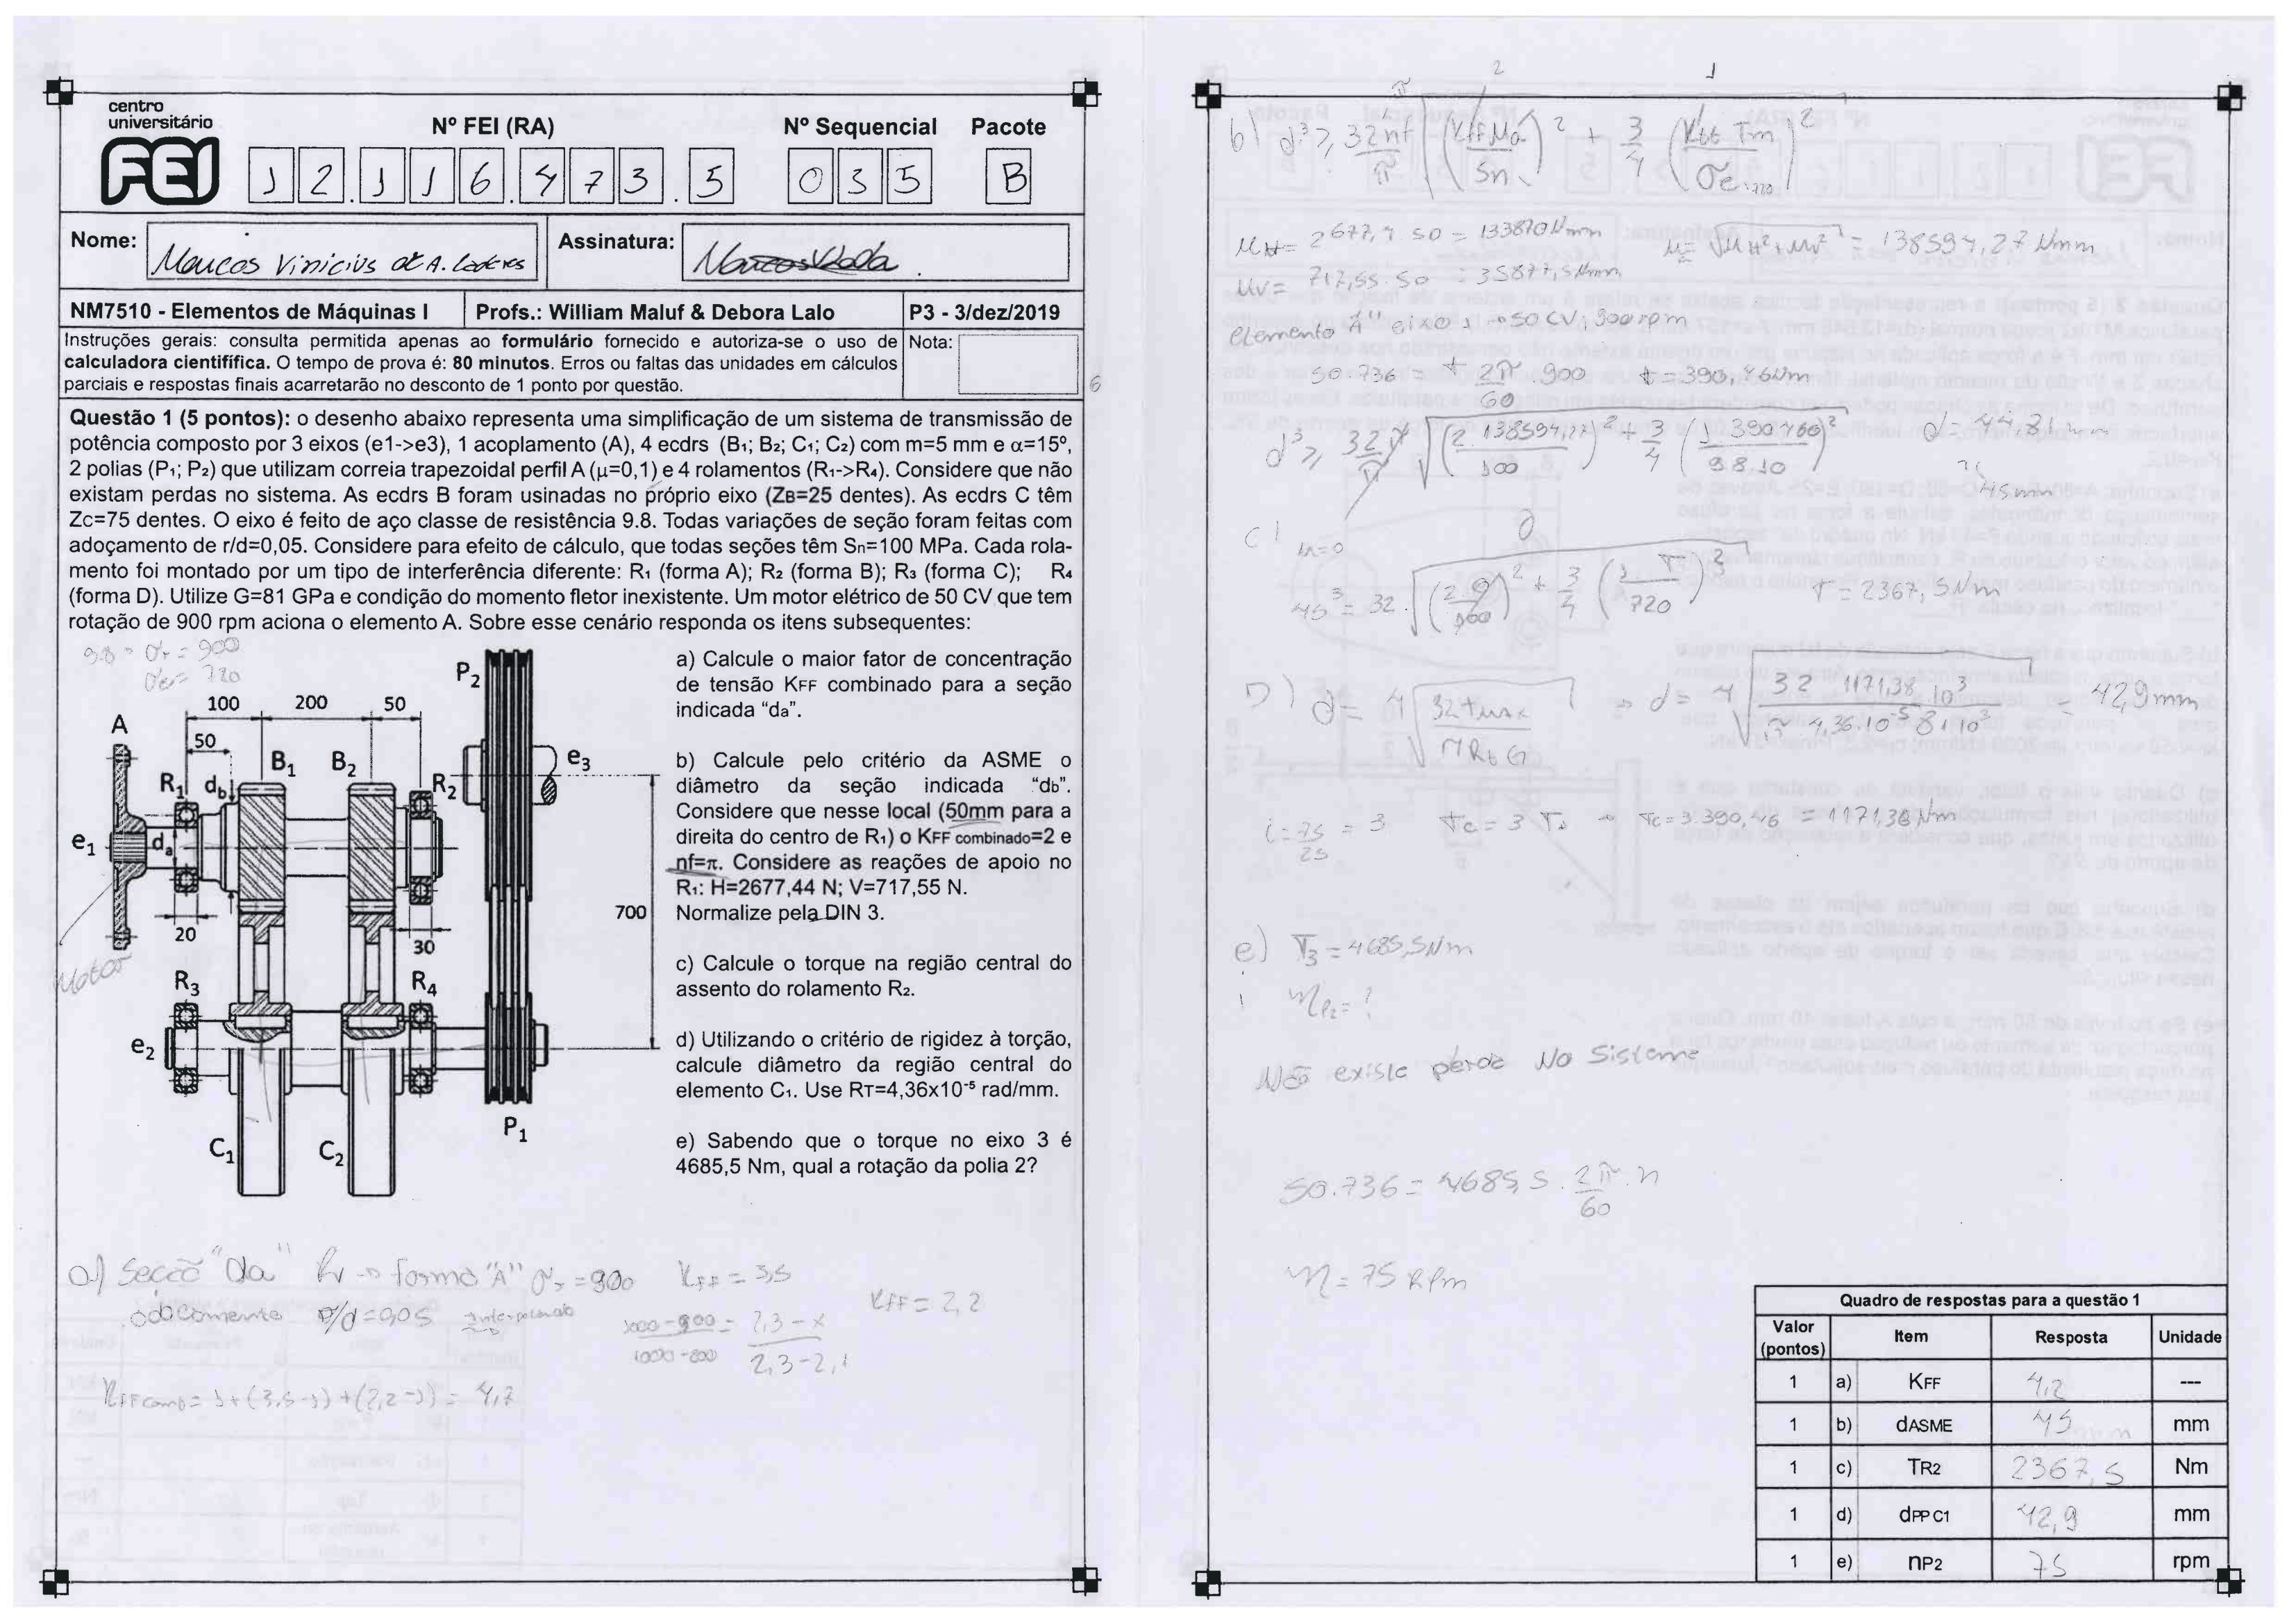 centro
universitário
FEI
Nº FEI (RA)
Nº Sequencial
Pacote
1 2 . 1 1 6 . 4 7 3 . 5
0 3 5
B
Nome:
Marcos Vinicius de A.
Assinatura:
NM7510 - Elementos de Máquinas I
Profs.: William Maluf & Debora Lalo
P3 - 3/dez/2019
Instruções gerais: consulta permitida apenas ao formulário fornecido e autoriza-se o uso de
calculadora cientifífica. O tempo de prova é: 80 minutos. Erros ou faltas das unidades em cálculos
parciais e respostas finais acarretarão no desconto de 1 ponto por questão.
Nota:
6
Questão 1 (5 pontos): o desenho abaixo representa uma simplificação de um sistema de transmissão de
potência composto por 3 eixos (e1->e3), 1 acoplamento (A), 4 ecdrs (B1; B2; C1; C2) com m=5 mm e α=15º,
2 polias (P1; P2) que utilizam correia trapezoidal perfil A (μ=0,1) e 4 rolamentos (R1->R4). Considere que não
existam perdas no sistema. As ecdrs B foram usinadas no próprio eixo (ZB=25 dentes). As ecdrs C têm
Zc=75 dentes. O eixo é feito de aço classe de resistência 9.8. Todas variações de seção foram feitas com
adoçamento de r/d=0,05. Considere para efeito de cálculo, que todas seções têm Sn=100 MPa. Cada rola-
mento foi montado por um tipo de interferência diferente: R1 (forma A); R2 (forma B); R3 (forma C); R4
(forma D). Utilize G=81 GPa e condição do momento fletor inexistente. Um motor elétrico de 50 CV que tem
rotação de 900 rpm aciona o elemento A. Sobre esse cenário responda os itens subsequentes:
9.8 → σr = 900
σe = 720
A
100
200
50
50
R1
db
B1
B2
R2
P2
e3
e1
da
20
30
700
Motor
R3
R4
e2
C1
C2
P1
a) Calcule o maior fator de concentração
de tensão KFF combinado para a seção
indicada “da”.
b) Calcule pelo critério da ASME o
diâmetro da seção indicada “db”.
Considere que nesse local (50mm para a
direita do centro de R1) o KFF combinado=2 e
nf=π. Considere as reações de apoio no
R1: H=2677,44 N; V=717,55 N.
Normalize pela DIN 3.
c) Calcule o torque na região central do
assento do rolamento R2.
d) Utilizando o critério de rigidez à torção,
calcule diâmetro da região central do
elemento C1. Use RT=4,36x10⁻⁵ rad/mm.
e) Sabendo que o torque no eixo 3 é
4685,5 Nm, qual a rotação da polia 2?
a) Secção "da" R1 → forma "A" σr = 900 KFF = 3,5
adoçamento r/d = 0,05 interpolando 1000 - 900 / 1000 - 800 = 2,3 - x / 2,3 - 2,1 KFF = 2,2
KFFcomb = 1 + (3,5 - 1) + (2,2 - 1) = 4,7
b) d³ ≥ 32 nf / π √ (Kff Ma / Sn)² + 3/4 (Kft Tm / σe)²
π 2 1 720
MH = 2677,4 . 50 = 133870 Nmm M = √MH² + MV² = 138594,27 Nmm
MV = 717,55 . 50 = 35877,5 Nmm
elemento "A" eixo 1 → 50 CV, 900 rpm
50.736 = t 2π/60 . 900 t = 390,46 Nm
d³ ≥ 32 π/π √ (2 . 138594,27 / 100)² + 3/4 (1 . 390460 / 9.8.10)² d = 44,81 mm
45 mm
c) M = 0 0
45³ = 32 . √ (2 . 0 / 100)² + 3/4 (1 T / 720)² T = 2367,5 Nm
D) d = 4√ 32 Tmax / π Rt G → d = 4√ 32 1171,38 . 10³ / π 4,36.10⁻⁵ 81.10³ = 42,9 mm
i = 75/25 = 3 Tc = 3 T → Tc = 3 . 390,46 = 1171,38 Nm
e) T3 = 4685,5 Nm
nP2 = ?
Não existe perda no sistema
50.736 = 4685,5 . 2π/60 . n
n = 75 Rpm
Quadro de respostas para a questão 1
Valor (pontos) Item Resposta Unidade
1 a) KFF 4,2 ---
1 b) dASME 45 mm
1 c) TR2 2367,5 Nm
1 d) dPP C1 42,9 mm
1 e) nP2 75 rpm